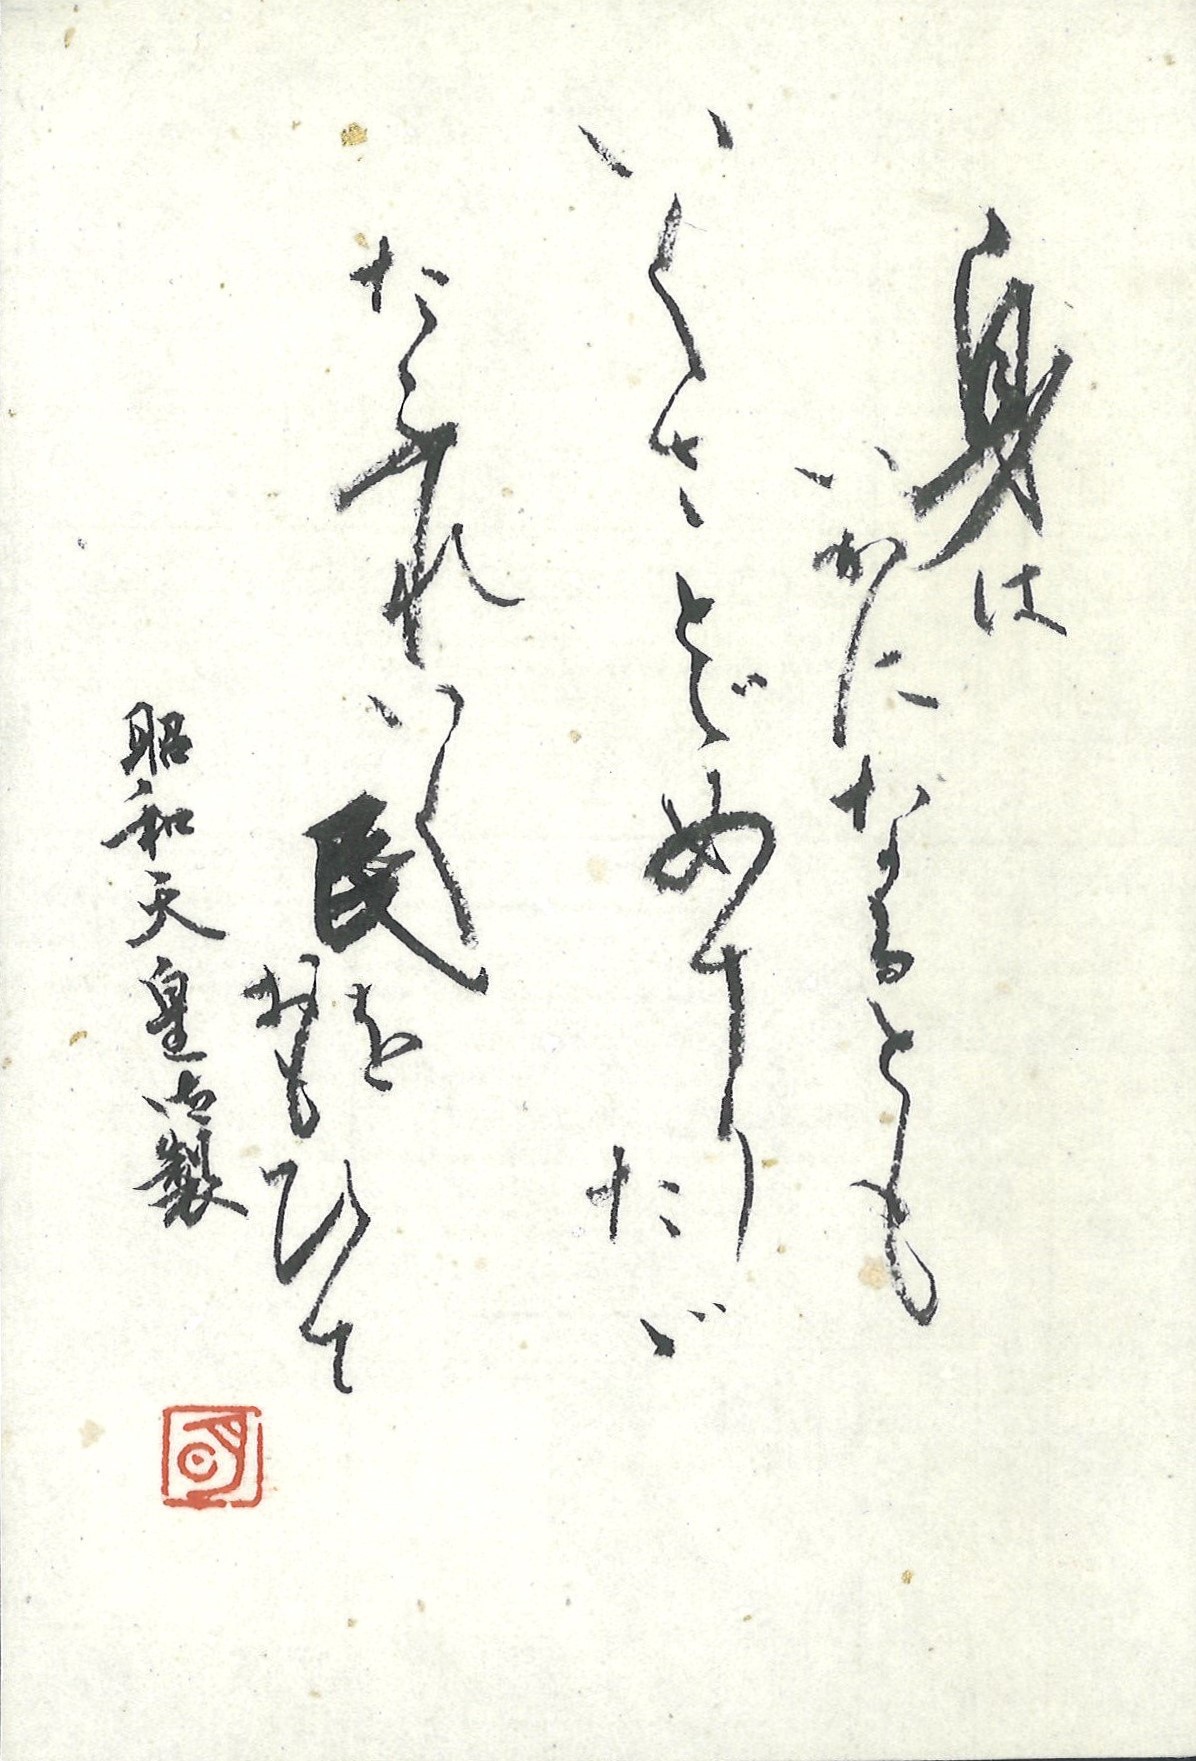 身は
いかになるとも
いくさとゞめけり
たゞ
たふれいく
民を
おもひて
昭和天皇御製